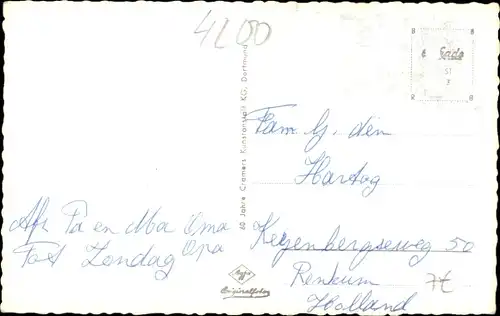 4200
60 Jahre Cramers Kunstanstalt KG, Dortmund
Fam. G. den
Hartog
Afz Pa en Moa Oma
Opa
Tot Zondag
Keyenbergseweg 50
Renkum
Holland
7E
Agfa
Originalfoto